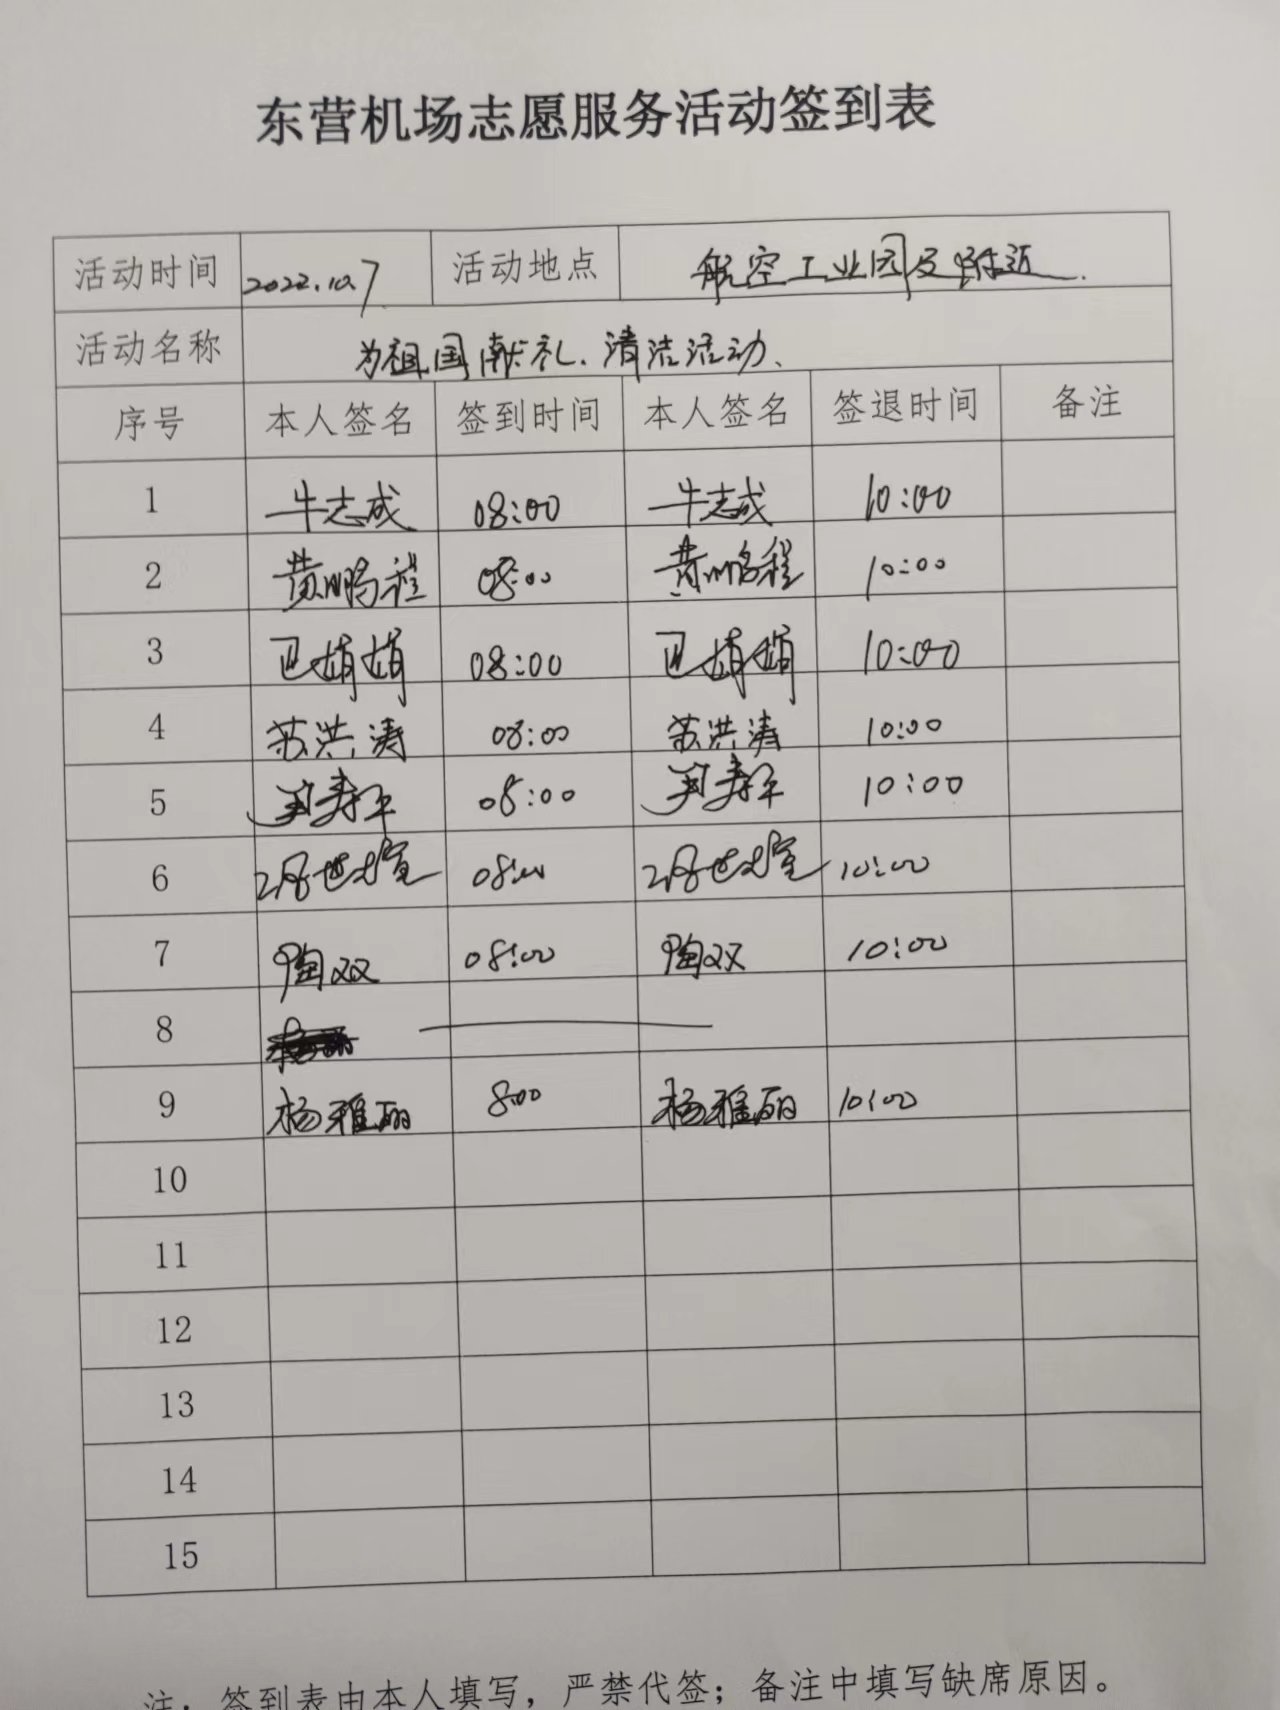 东营机场志愿服务活动签到表
活动时间 2022.10.7 活动地点 航空工业园及附近.
活动名称 为祖国献礼.清洁活动.
序号 本人签名 签到时间 本人签名 签退时间 备注
1 牛志成 08:00 牛志成 10:00
2 黄鹏程 08:00 黄鹏程 10:00
3 巴娟娟 08:00 巴娟娟 10:00
4 苏洪涛 08:00 苏洪涛 10:00
5 08:00 10:00
6 08:00 10:00
7 陶双 08:00 陶双 10:00
8
9 杨雅丽 8:00 杨雅丽 10:00
10
11
12
13
14
15
注：签到表由本人填写，严禁代签；备注中填写缺席原因。